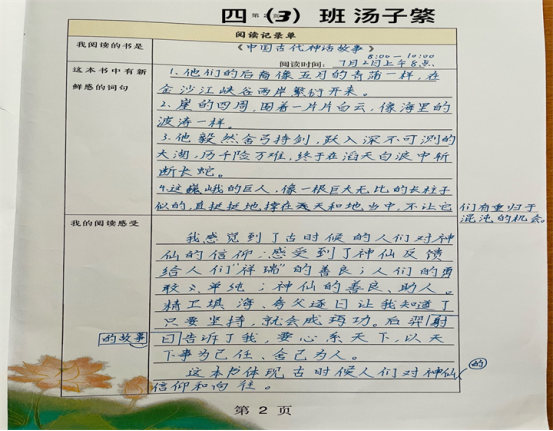 四（3）班 汤子繁
阅读记录单
我阅读的书是
《中国古代神话故事》
8:00-10:00
阅读时间：7月2日上午8点
这本书中有新
鲜感的词句
1.他们的后裔像五月的菖蒲一样，在
金沙江峡谷两岸繁衍开来。
2.崖的四周，围着一片片白云，像海里的
波涛一样。
3.他毅然舍弓持剑，跃入深不可测的
大湖，历千险万难，终于在滔天白浪中斩
断长蛇。
4.这巍峨的巨人，像一根巨大无比的长柱子
似的，直挺挺地撑在天和地当中，不让它
们有重归于
混沌的机会。
我的阅读感受
我感觉到了古时候的人们对神
仙的信仰；感受到了神仙反馈
给人们“祥瑞”的善良；人们的勇
敢、单纯；神仙的善良、助人。
精卫填海、夸父逐日让我知道了
只要坚持，就会成功。后羿射
日告诉了我，要心系天下，以天
的故事
下事为己任、舍己为人。
这本书体现古时候人们对神仙
的
信仰和向往。
第 2 页